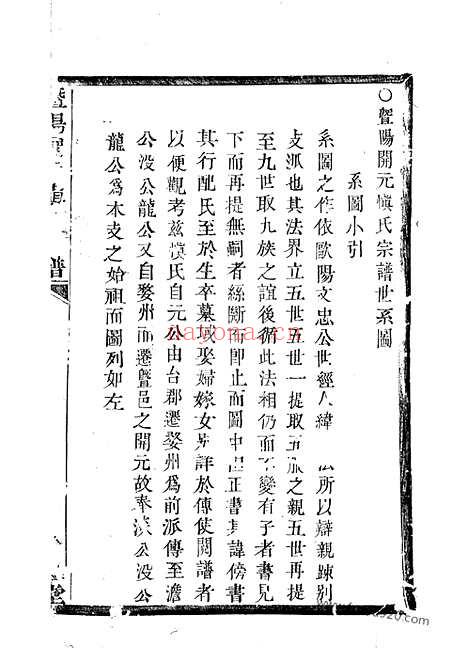 ○暨陽開元愼氏宗譜世系圖
系圖小引
系圖之作依歐陽文忠公世經人緯 法所以辯親踈別
支派也其法界立五世五世一提取五服之親五世再提
至九世取九族之誼後循此法相仍而不變有子者書見
下而再提無嗣者絲斷而卽止而圖中但正書其諱傍書
其行配氏至於生卒墓域娶婦嫁女另詳於傳使閱譜者
以便觀考兹愼氏自元公由台郡遷婺州爲前派傳至澹
公沒公龍公又自婺州而遷暨邑之開元故奉渶公沒公
龍公爲本支之始祖而圖列如左
譜
堂
nayona.cn
yibook520.com